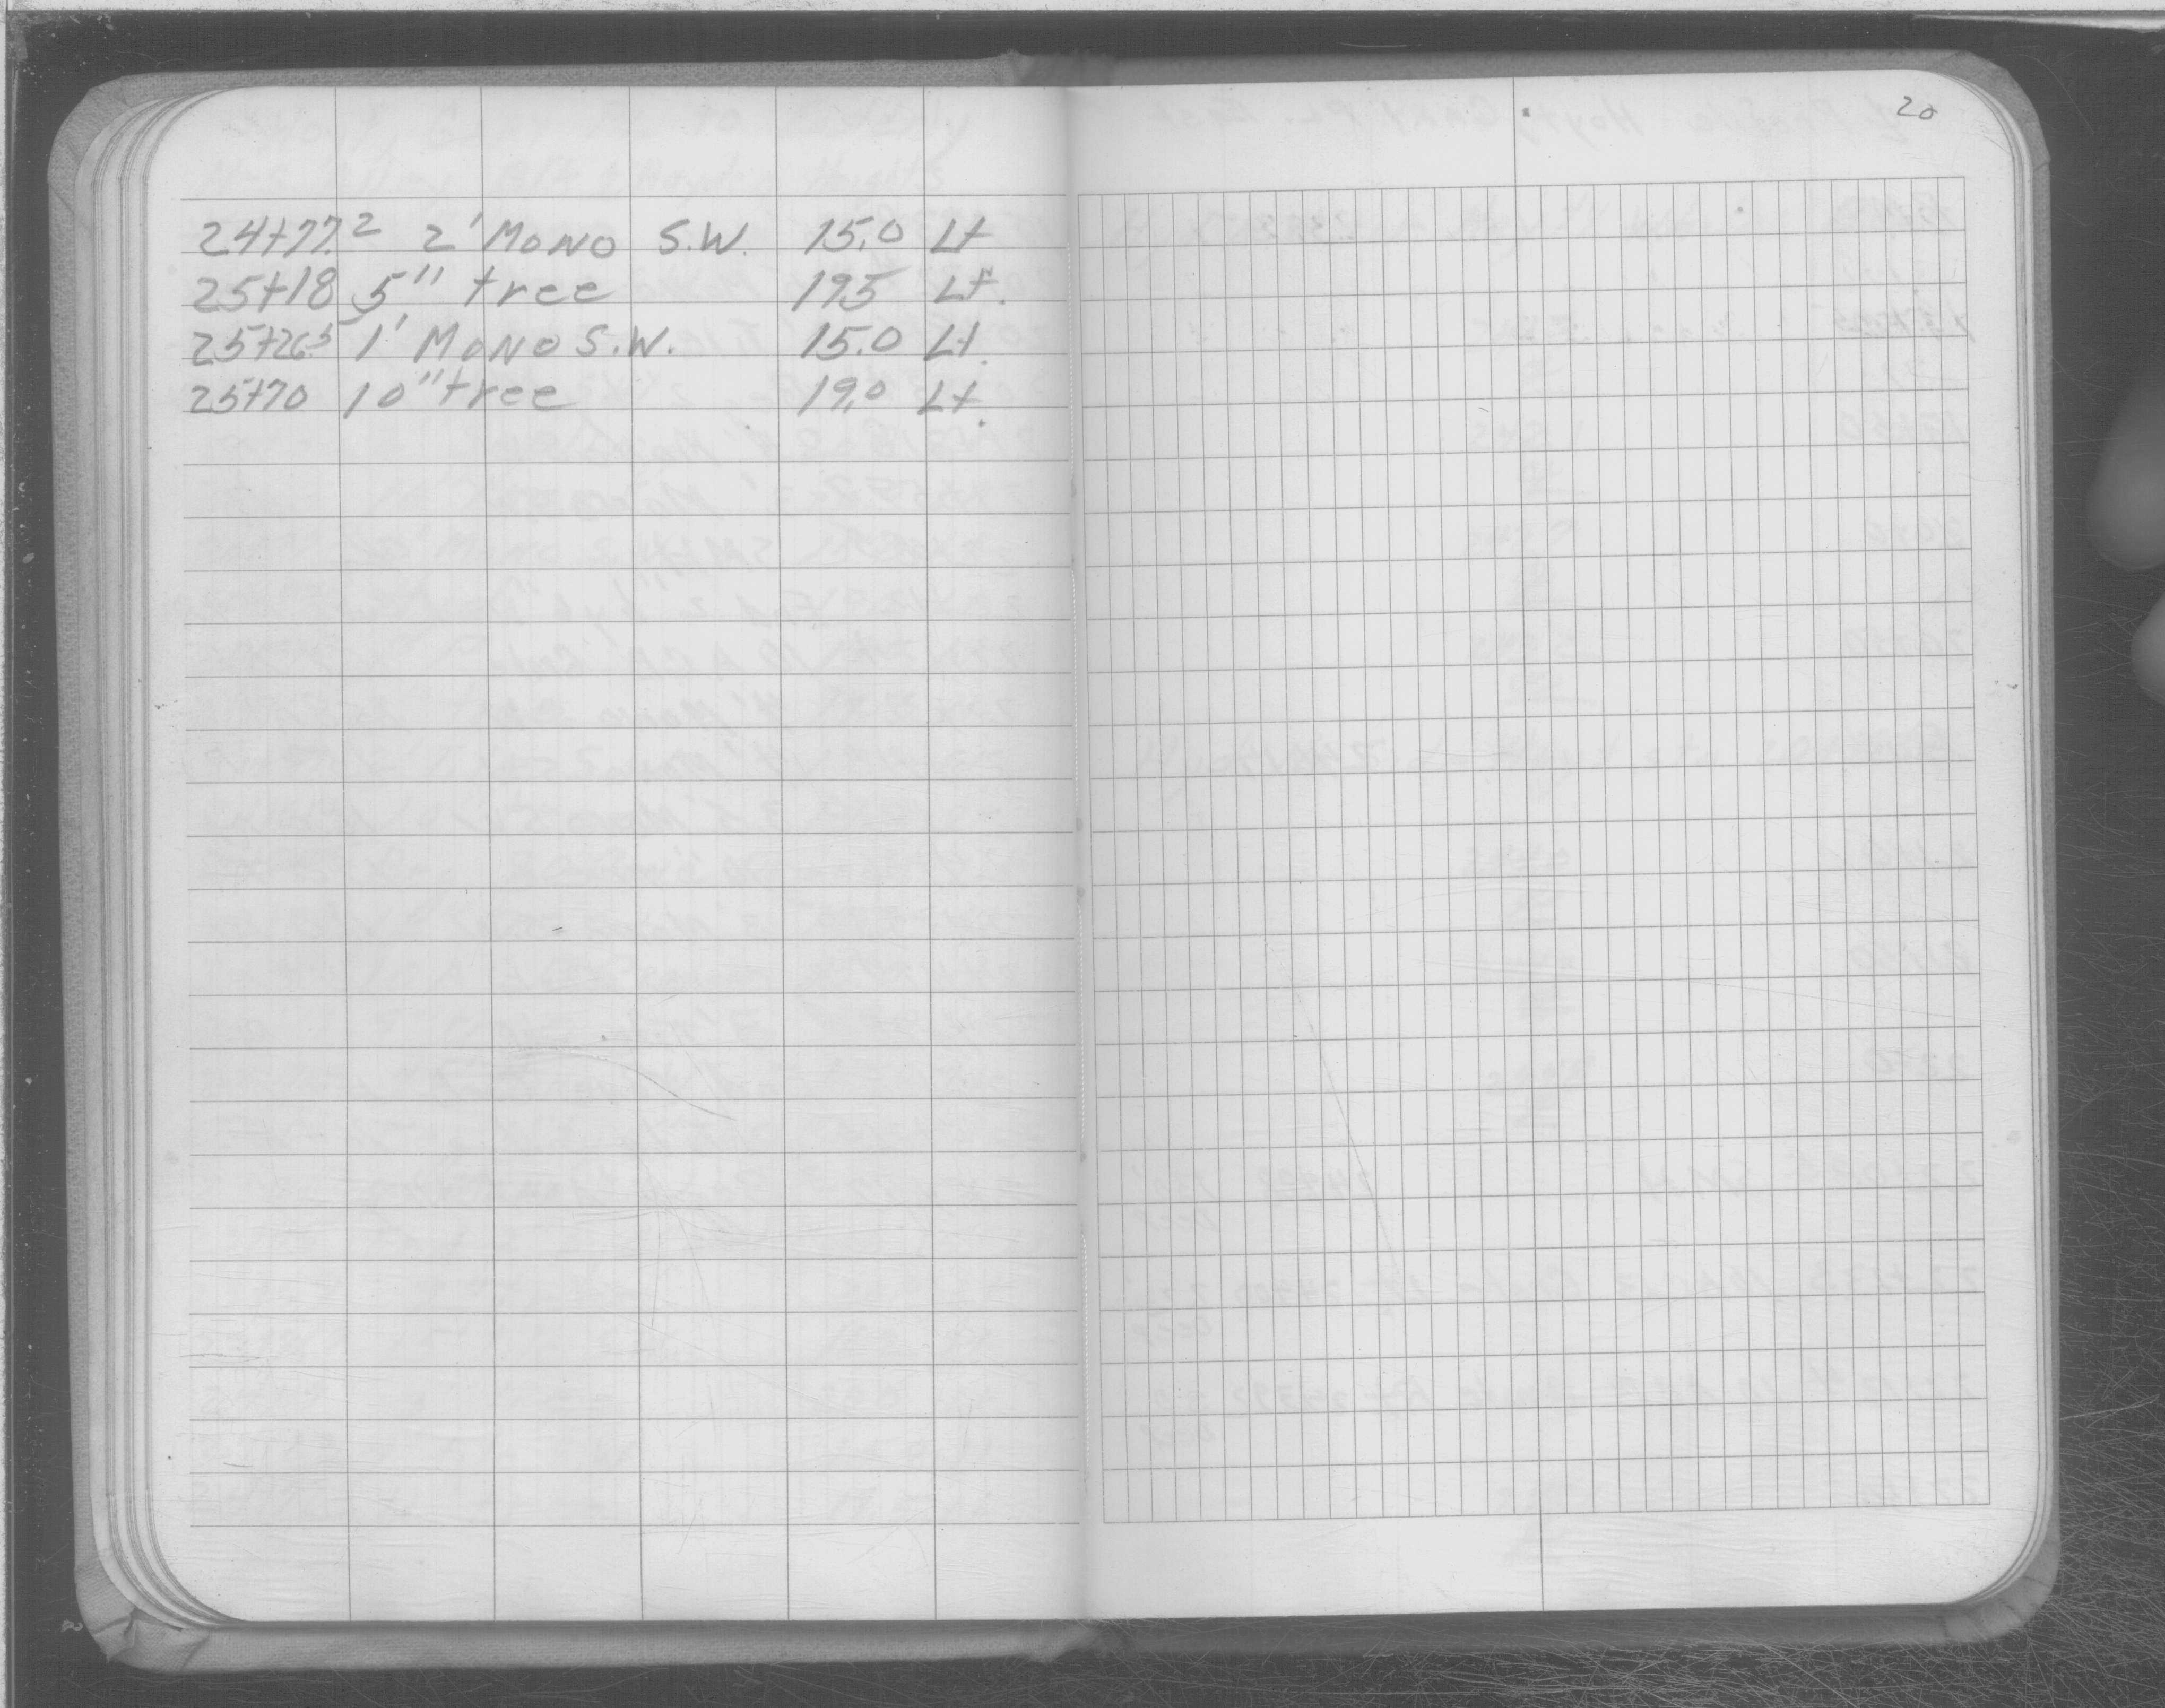 24+77.2 2' MONO S.W. 15.0 Lt
25+18 5" tree 19.5 Lt.
25+26.5 1' MONO S.W. 15.0 Lt.
25+70 10" tree 19.0 Lt.
20